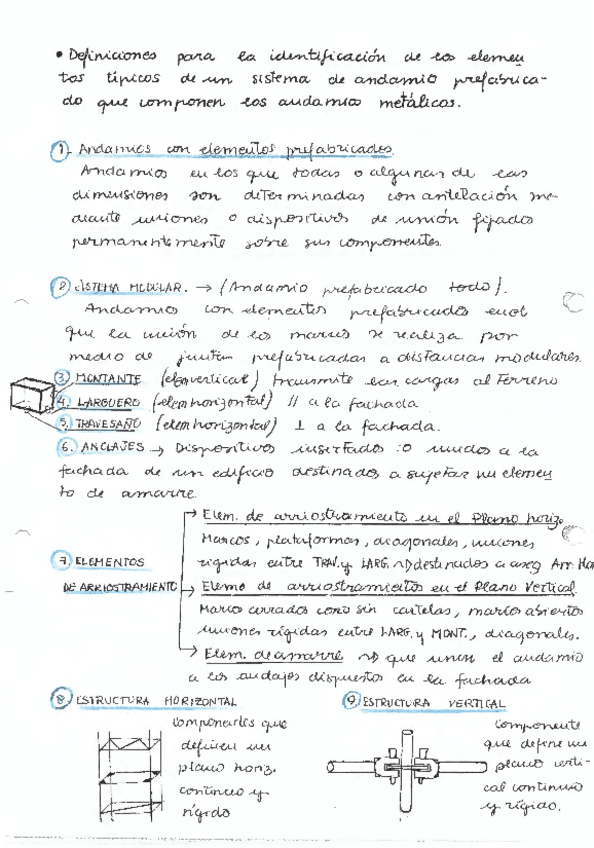 • Definiciones para la identificación de los elemen
tos típicos de un sistema de andamio prefabrica-
do que componen los andamios metálicos.
1. Andamios con elementos prefabricados.
Andamios en los que todas o algunas de las
dimensiones son determinadas con antelación me-
diante uniones o dispositivos de unión fijados
permanentemente sobre sus componentes.
2. SISTEMA MODULAR. → (Andamio prefabricado todo).
Andamios con elementos prefabricados en el
que la unión de los marcos se realiza por
medio de juntas prefabricadas a distancias modulares.
3. MONTANTE (elem vertical) transmite las cargas al Terreno
4. LARGUERO (elem horizontal) // a la fachada
5. TRAVESAÑO (elem horizontal) ⊥ a la fachada.
6. ANCLAJES → Dispositivos insertados o unidos a la
fachada de un edificio destinados a sujetar un elemen
to de amarre.
7. ELEMENTOS
DE ARRIOSTRAMIENTO
→ Elem. de arriostramiento en el Plano horiz.
Marcos, plataformas, diagonales, uniones
rígidas entre TRAV. y LARG. destinados a aseg Arr. Ho
→ Elems de arriostramientos en el Plano Vertical.
Marcos cerrados con o sin cartelas, marcos abiertos
uniones rígidas entre LARG. y MONT., diagonales.
→ Elem. de amarre que unen el andamio
a los anclajes dispuestos en la fachada
8. ESTRUCTURA HORIZONTAL
componentes que
definen un
plano horiz.
continuo y
rígido
9. ESTRUCTURA VERTICAL
componente
que define un
plano verti-
cal continuo
y rígido.